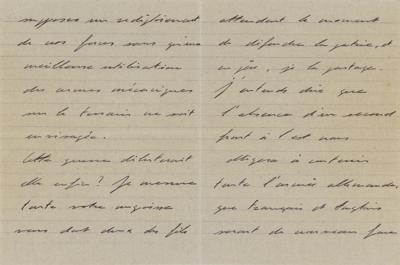 supposes un redéploiement
de nos forces sans qu'une
meilleure utilisation
des armes mécaniques
sur le terrain ne soit
envisagée.
Cette guerre
elle enfin ? Je
toute votre angoisse
vous dont deux des fils
attendent le moment
de défendre la patrie, et
je la partage.
J'entends dire que
l'absence d'un second
front à l'est nous
obligera à contenir
toute l'armée allemande,
que français et anglais
seront de nouveau face